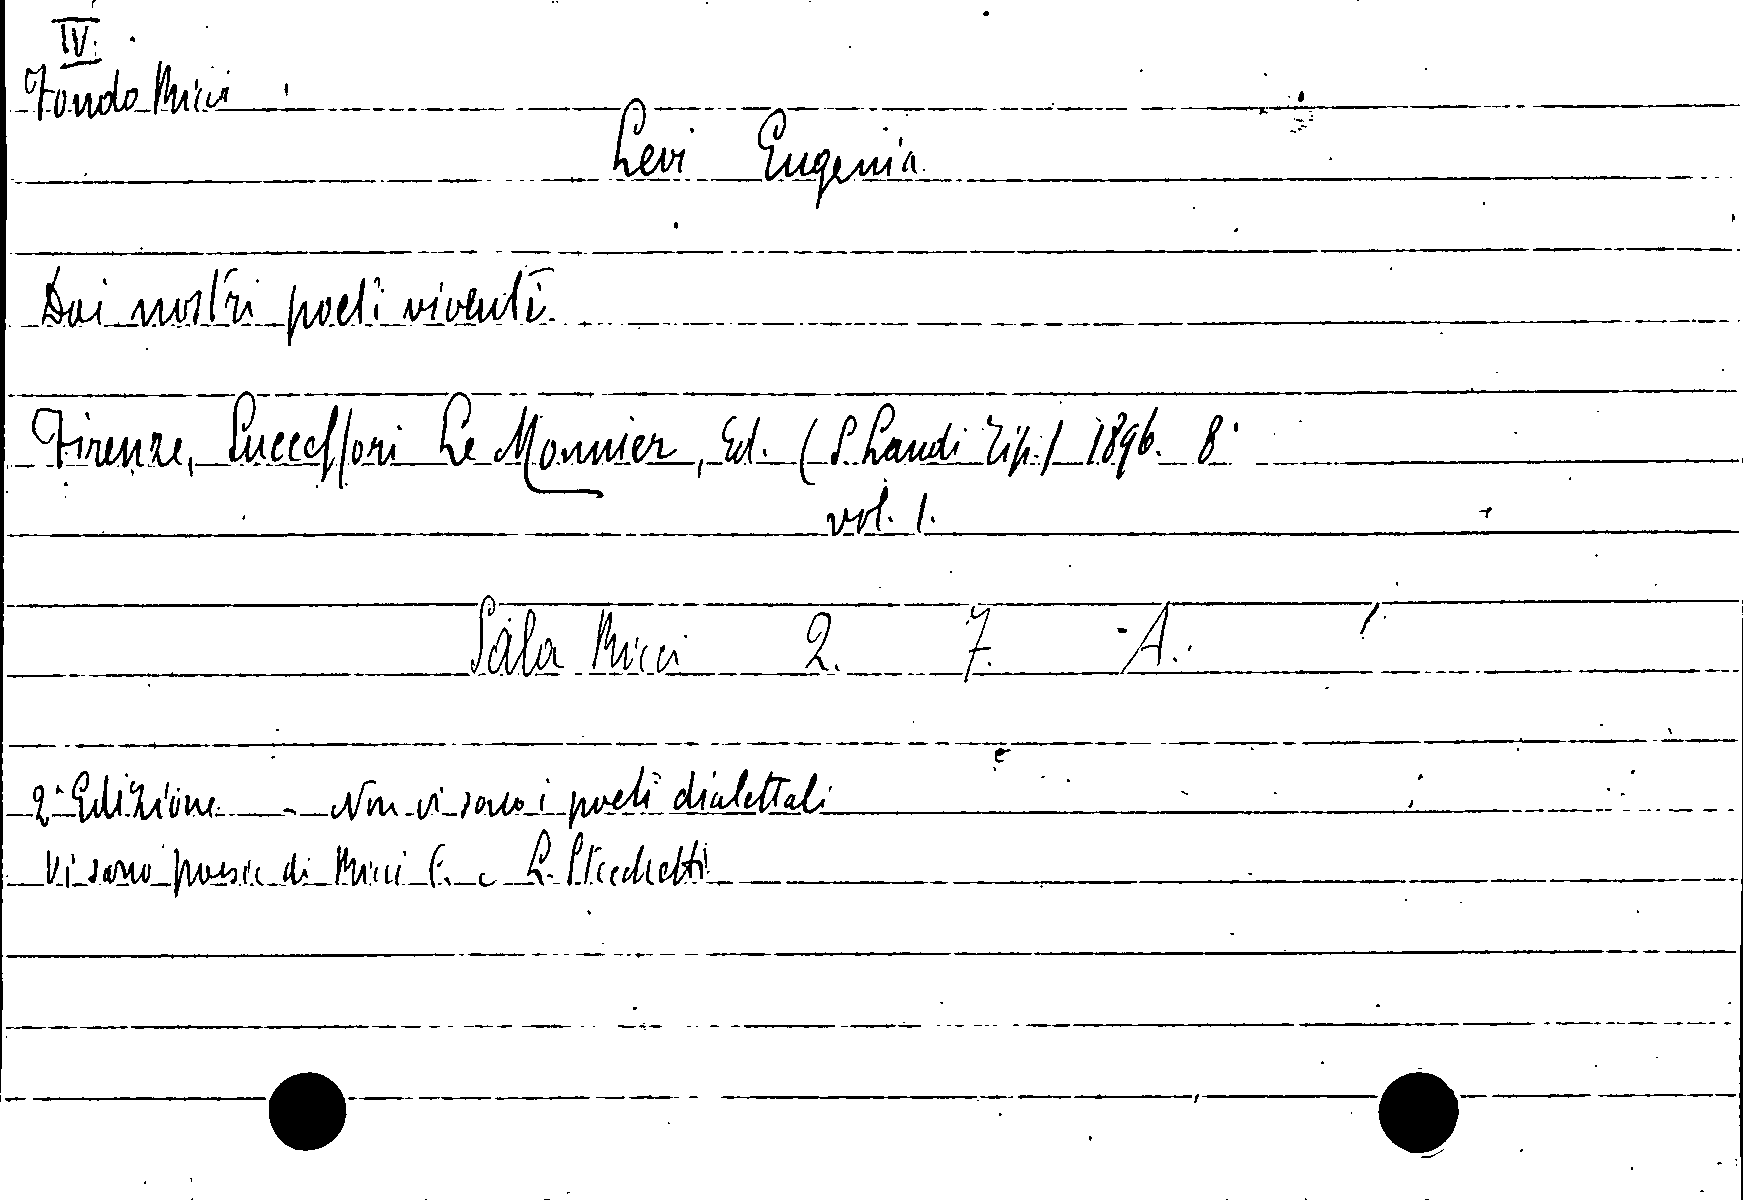 IV.
Fondo Ricci
Levi Eugenia
Dai nostri poeti viventi.
Firenze, Successori Le Monnier, Ed. (S. Landi Tip.) 1896. 8°
vol. 1.
Sala Ricci 2. 7. A.
2ª Edizione - Non vi sono i poeti dialettali
Vi sono poesie di Ricci C. e L. Stecchetti